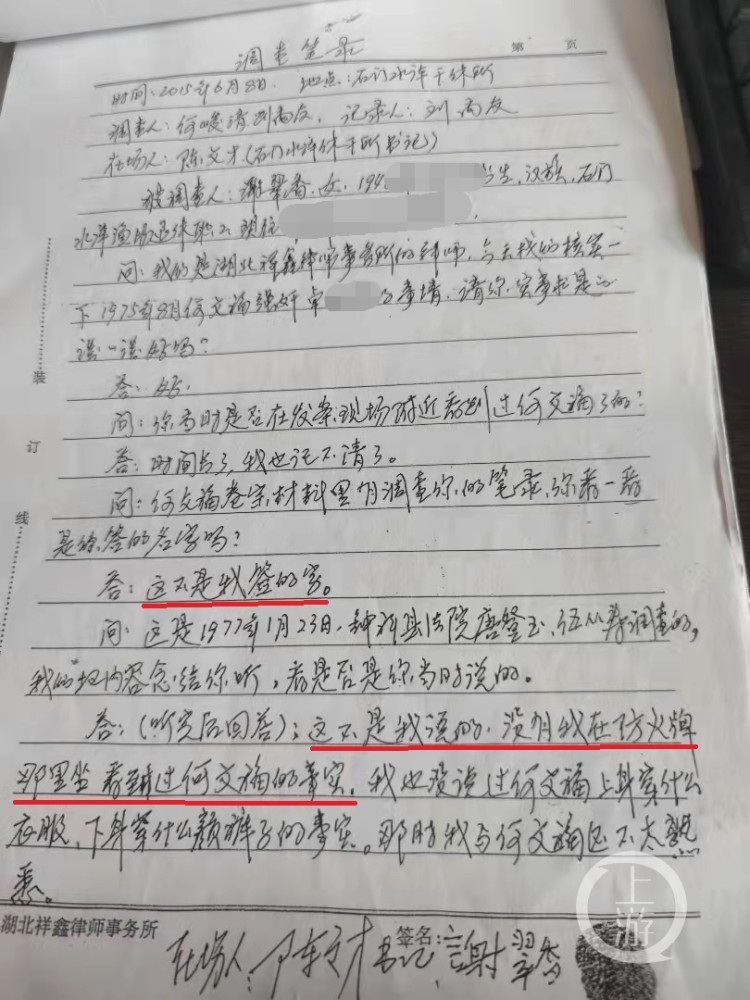 调查笔录
第 页
时间：2015年6月8日. 地点：石门水浒干休所
调查人：何峻清 刘南友， 记录人：刘南友
在场人：陈文才（石门水浒休干所书记）
被调查人：谢翠香，女，194 生，汉族，石门
水浒渔场退休职工 现住
问：我们是湖北祥鑫律师事务所的律师，今天找你核实一
下1975年8月何文涌强奸卓 的事情，请你实事求是的
谈一谈好吗？
答：好.
问：你当时是否在发案现场附近看到过何文涌了的？
答：时间长了，我也记不清了。
问：何文涌卷宗材料里有调查你的笔录，你看一看
是你签的名字吗？
答：这不是我签的字。
问：这是1977年1月23日，钟祥县法院唐 调查的，
我们把内容念给你听，看是否是你当时说的。
答：（听完后回答）：这不是我说的，没有我在防火牌
那里坐看到过何文涌的事实，我也没说过何文涌上身穿什么
衣服，下身穿什么颜裤子的事实。那时我与何文涌还不太熟
悉。
装
订
线
湖北祥鑫律师事务所
签名：谢翠香
在场人：陈文才 书记
上游